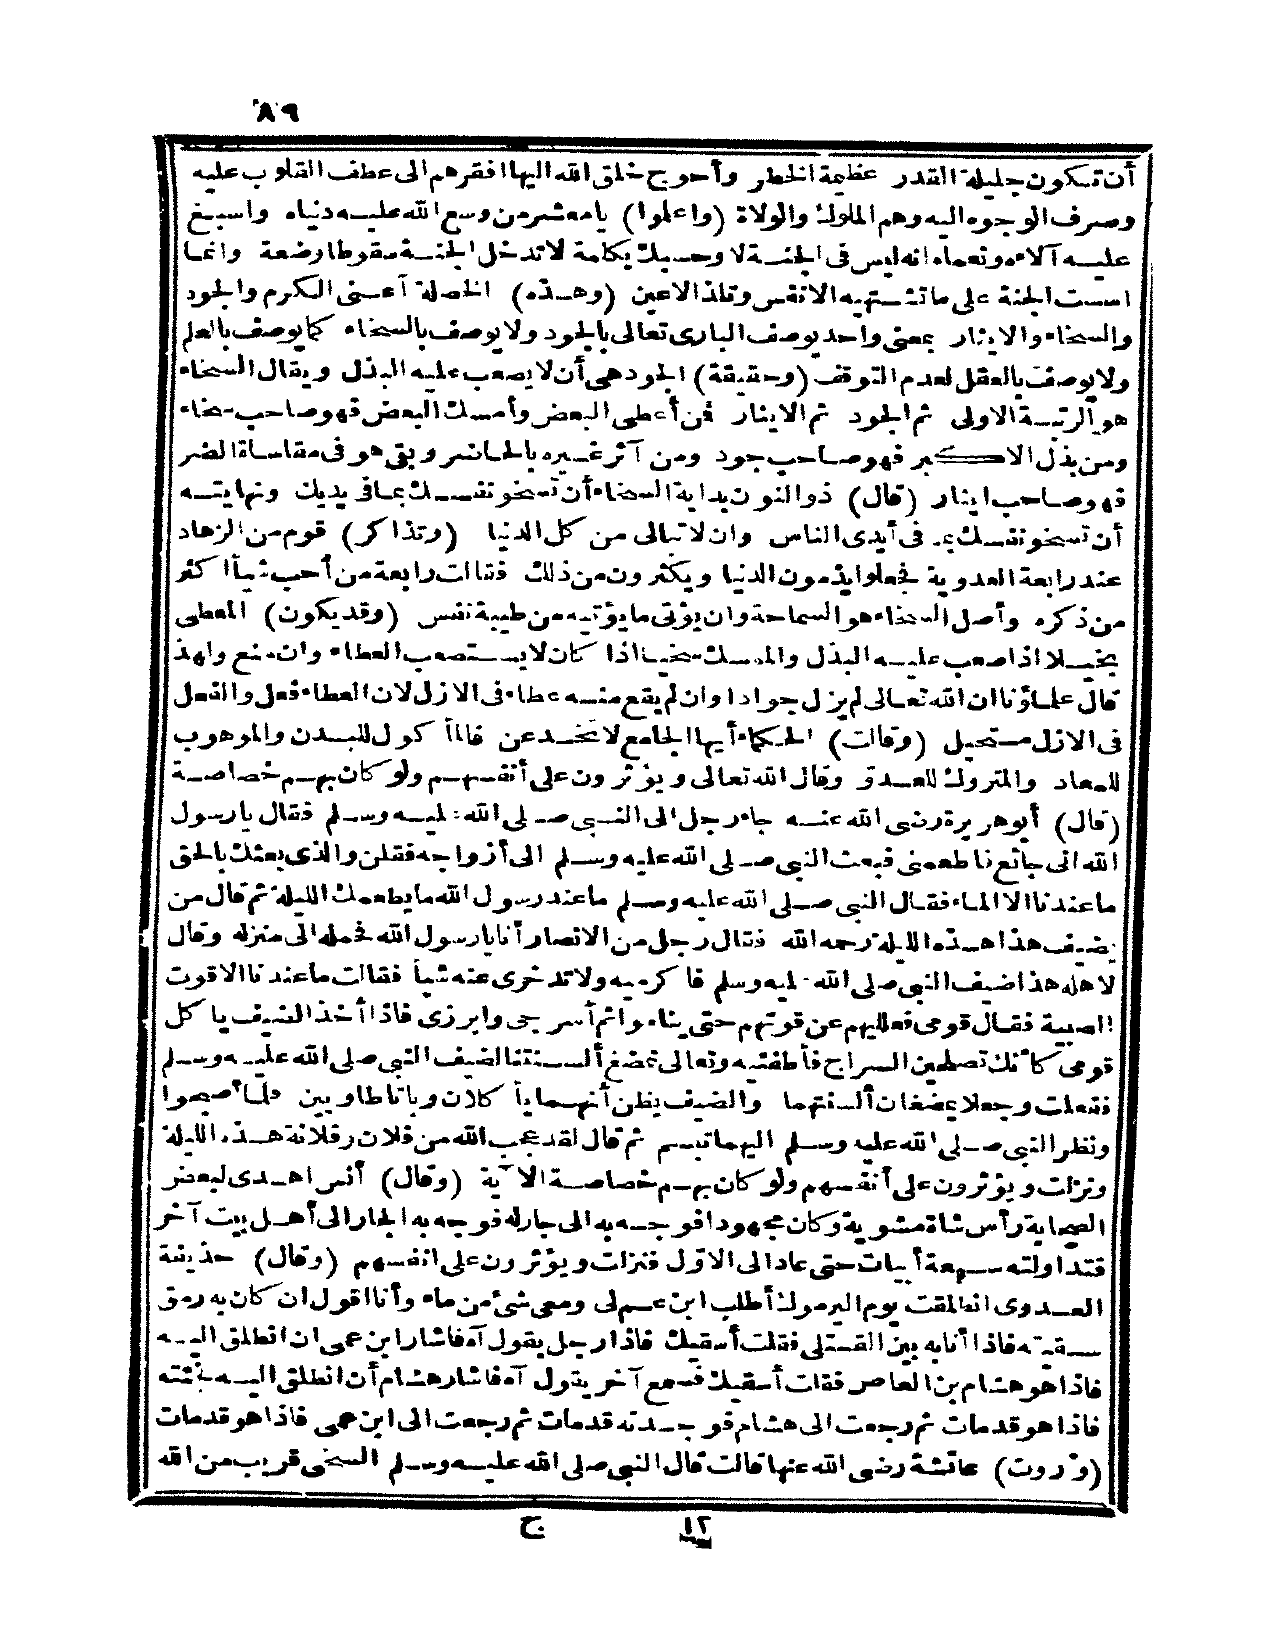 ٨٩
أن تكون جليلة القدر عظيمة الخطر وأحوج خلق الله اليها افقرهم الى عطف القلوب عليه
وصرف الوجوه اليه وهم الملوك والولاة (واعلموا) يا معشر من وسع الله عليه دنياه واسبغ
عليه آلاءه ونعماءه انه ليس في الجنة لا وحسبك بكلمة لا تدخل الجنة سقوطا وضعة وانما
اسست الجنة على ما تشتهيه الانفس وتلذ الاعين (وهذه) الخصلة أعنى الكرم والجود
والسخاء والايثار بمعنى واحد يوصف البارى تعالى بالجود ولا يوصف بالسخاء كما يوصف بالعلم
ولا يوصف بالعقل لعدم التوقف (وحقيقة) الجود هى أن لا يصعب عليه البذل ويقال السخاء
هو الرتبة الاولى ثم الجود ثم الايثار فمن أعطى البعض وأمسك البعض فهو صاحب سخاء
ومن بذل الاكبر فهو صاحب جود ومن آثر غيره بالحاضر وبقى هو فى مقاساة الضر
فهو صاحب ايثار (قال) ذو النون بداية السخاء أن تسخو نفسك بما فى يديك ونهايته
أن تسخو نفسك بما فى أيدى الناس وان لا تبالى من كل الدنيا (وتذاكر) قوم من الزهاد
عند رابعة العدوية فجعلوا يذمون الدنيا ويكثرون من ذلك فقالت رابعة من أحب شيأ اكثر
من ذكره وأصل السخاء هو السماحة وان يؤتى ما يؤتيه من طيبة نفس (وقد يكون) المعطى
بخيلا اذا صعب عليه البذل والممسك سخيا اذا كان لا يستصعب العطاء وان منع ولهذا
قال علماؤنا ان الله تعالى لم يزل جوادا وان لم يقع منه عطاء فى الازل لان العطاء فعل والفعل
فى الازل مستحيل (وقالت) الحكماء أيها الجامع لا تخدعن فالمأكول للبدن والموهوب
للمعاد والمتروك للعدو وقال الله تعالى ويؤثرون على أنفسهم ولو كان بهم خصاصة
(قال) أبو هريرة رضى الله عنه جاء رجل الى النبى صلى الله عليه وسلم فقال يا رسول
الله انى جائع فاطعمنى فبعث النبى صلى الله عليه وسلم الى أزواجه فقلن والذى بعثك بالحق
ما عندنا الا الماء فقال النبى صلى الله عليه وسلم ما عند رسول الله ما يطعمك الليلة ثم قال من
يضيف هذا هذه الليلة رحمه الله فقال رجل من الانصار أنا يا رسول الله فحمله الى منزله وقال
لاهله هذا ضيف النبى صلى الله عليه وسلم فاكرميه ولا تدخرى عنه شيأ فقالت ما عندنا الا قوت
الصبية فقال قومى فعلليهم عن قوتهم حتى يناموا ثم أسرجى وابرزى فاذا أخذ الضيف يأكل
قومى كأنك تصلحين السراج فأطفئيه وتعالى نمضغ ألسنتنا لضيف النبى صلى الله عليه وسلم
ففعلت وجعلا يمضغان ألسنتهما والضيف يظن أنهما يأكلان وباتا طاويين فلما أصبحوا
ونظر النبى صلى الله عليه وسلم اليهما تبسم ثم قال لقد عجب الله من فلان وفلانة هذه الليلة
ونزلت ويؤثرون على أنفسهم ولو كان بهم خصاصة الآية (وقال) أنس اهدى لبعض
الصحابة رأس شاة مشوية وكان مجهودا فوجه به الى جار له فوجه به الجار الى أهل بيت آخر
فتداولته سبعة أبيات حتى عاد الى الاول فنزلت ويؤثرون على انفسهم (وقال) حذيفة
العدوى انطلقت يوم اليرموك أطلب ابن عم لى ومعى شئ من ماء وأنا اقول ان كان به رمق
سقيته فاذا أنا به بين القتلى فقلت أسقيك فاذا رجل يقول آه فاشار ابن عمى ان انطلق اليه
فاذا هو هشام بن العاص فقلت أسقيك فسمع آخر يقول آه فاشار هشام أن انطلق اليه فجئته
فاذا هو قد مات ثم رجعت الى هشام فوجدته قد مات ثم رجعت الى ابن عمى فاذا هو قد مات
(وروت) عائشة رضى الله عنها قالت قال النبى صلى الله عليه وسلم السخى قريب من الله
١٢ ج